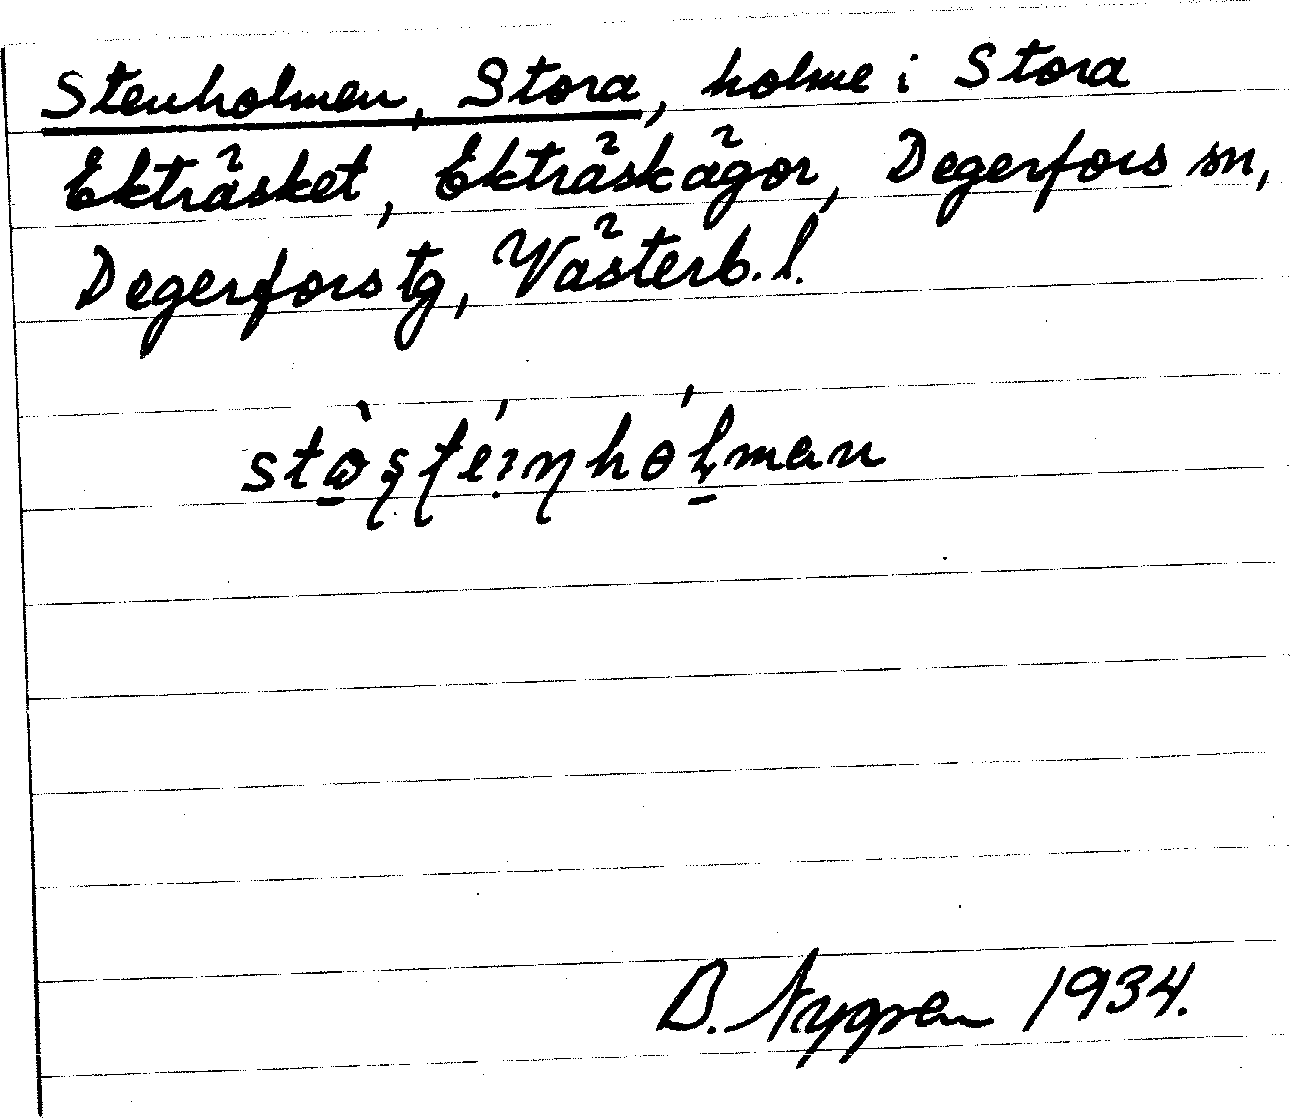 Stenholmen, Stora, holme i Stora
Ekträsket, Ekträskågor, Degerfors sn,
Degerfors tg, Västerb. l.
B. Nygren 1934.